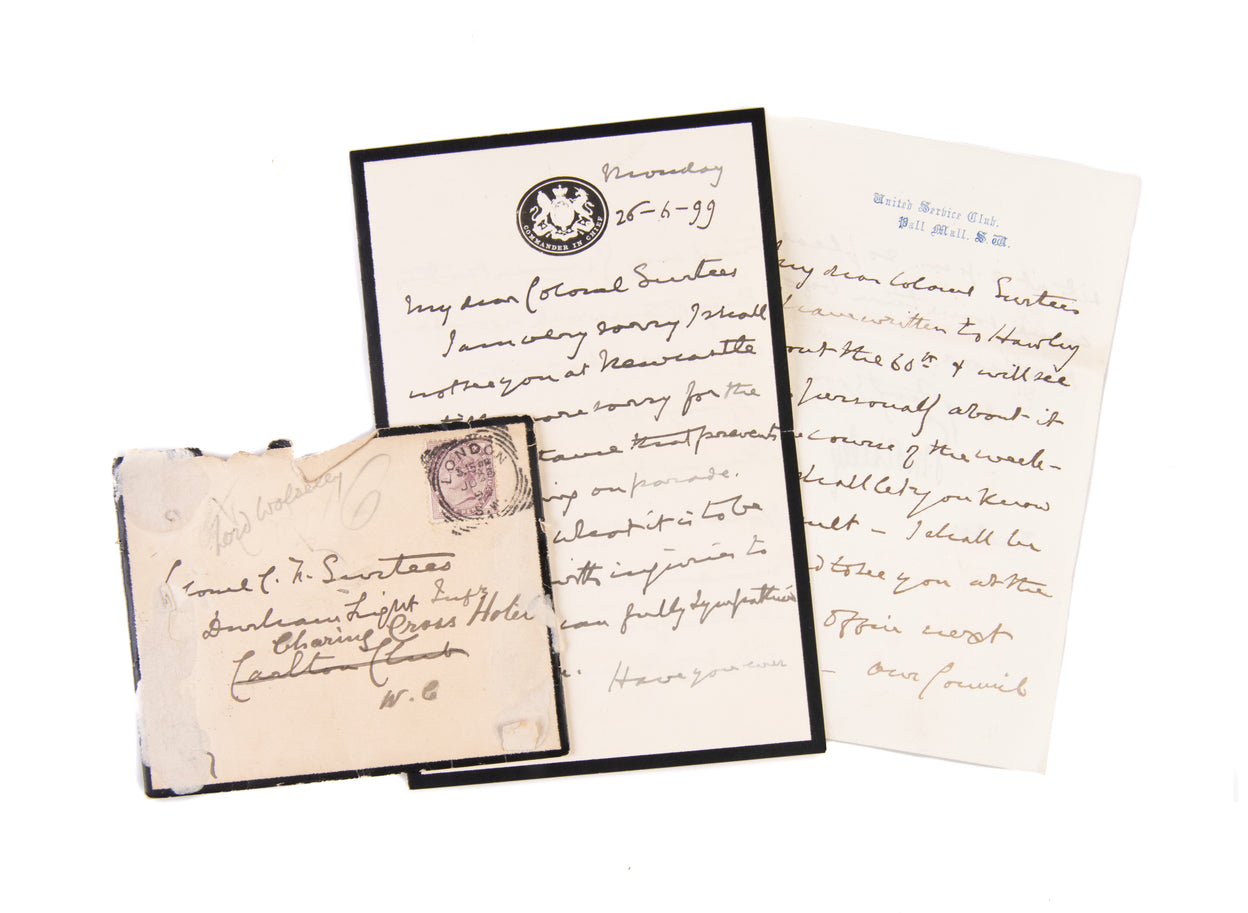 Lord Wolseley
16
LONDON
S.W.
C. Surtees
Durham Light Infy
Charing Cross Hotel
Carlton Club
W. C
Monday
26-6-99
COMMANDER IN CHIEF
My dear Colonel Surtees
I am very sorry I shall
not see you at Newcastle
more sorry for the
cause that prevents
on parade.
what it is to be
with injuries to
can fully sympathise
Have you ever
United Service Club,
Pall Mall. S.W.
My dear Colonel Surtees
I have written to Hawley
about the 60th & will see
personally about it
course of the week-
shall let you know
result - I shall be
to see you at the
Office next
- Our Council